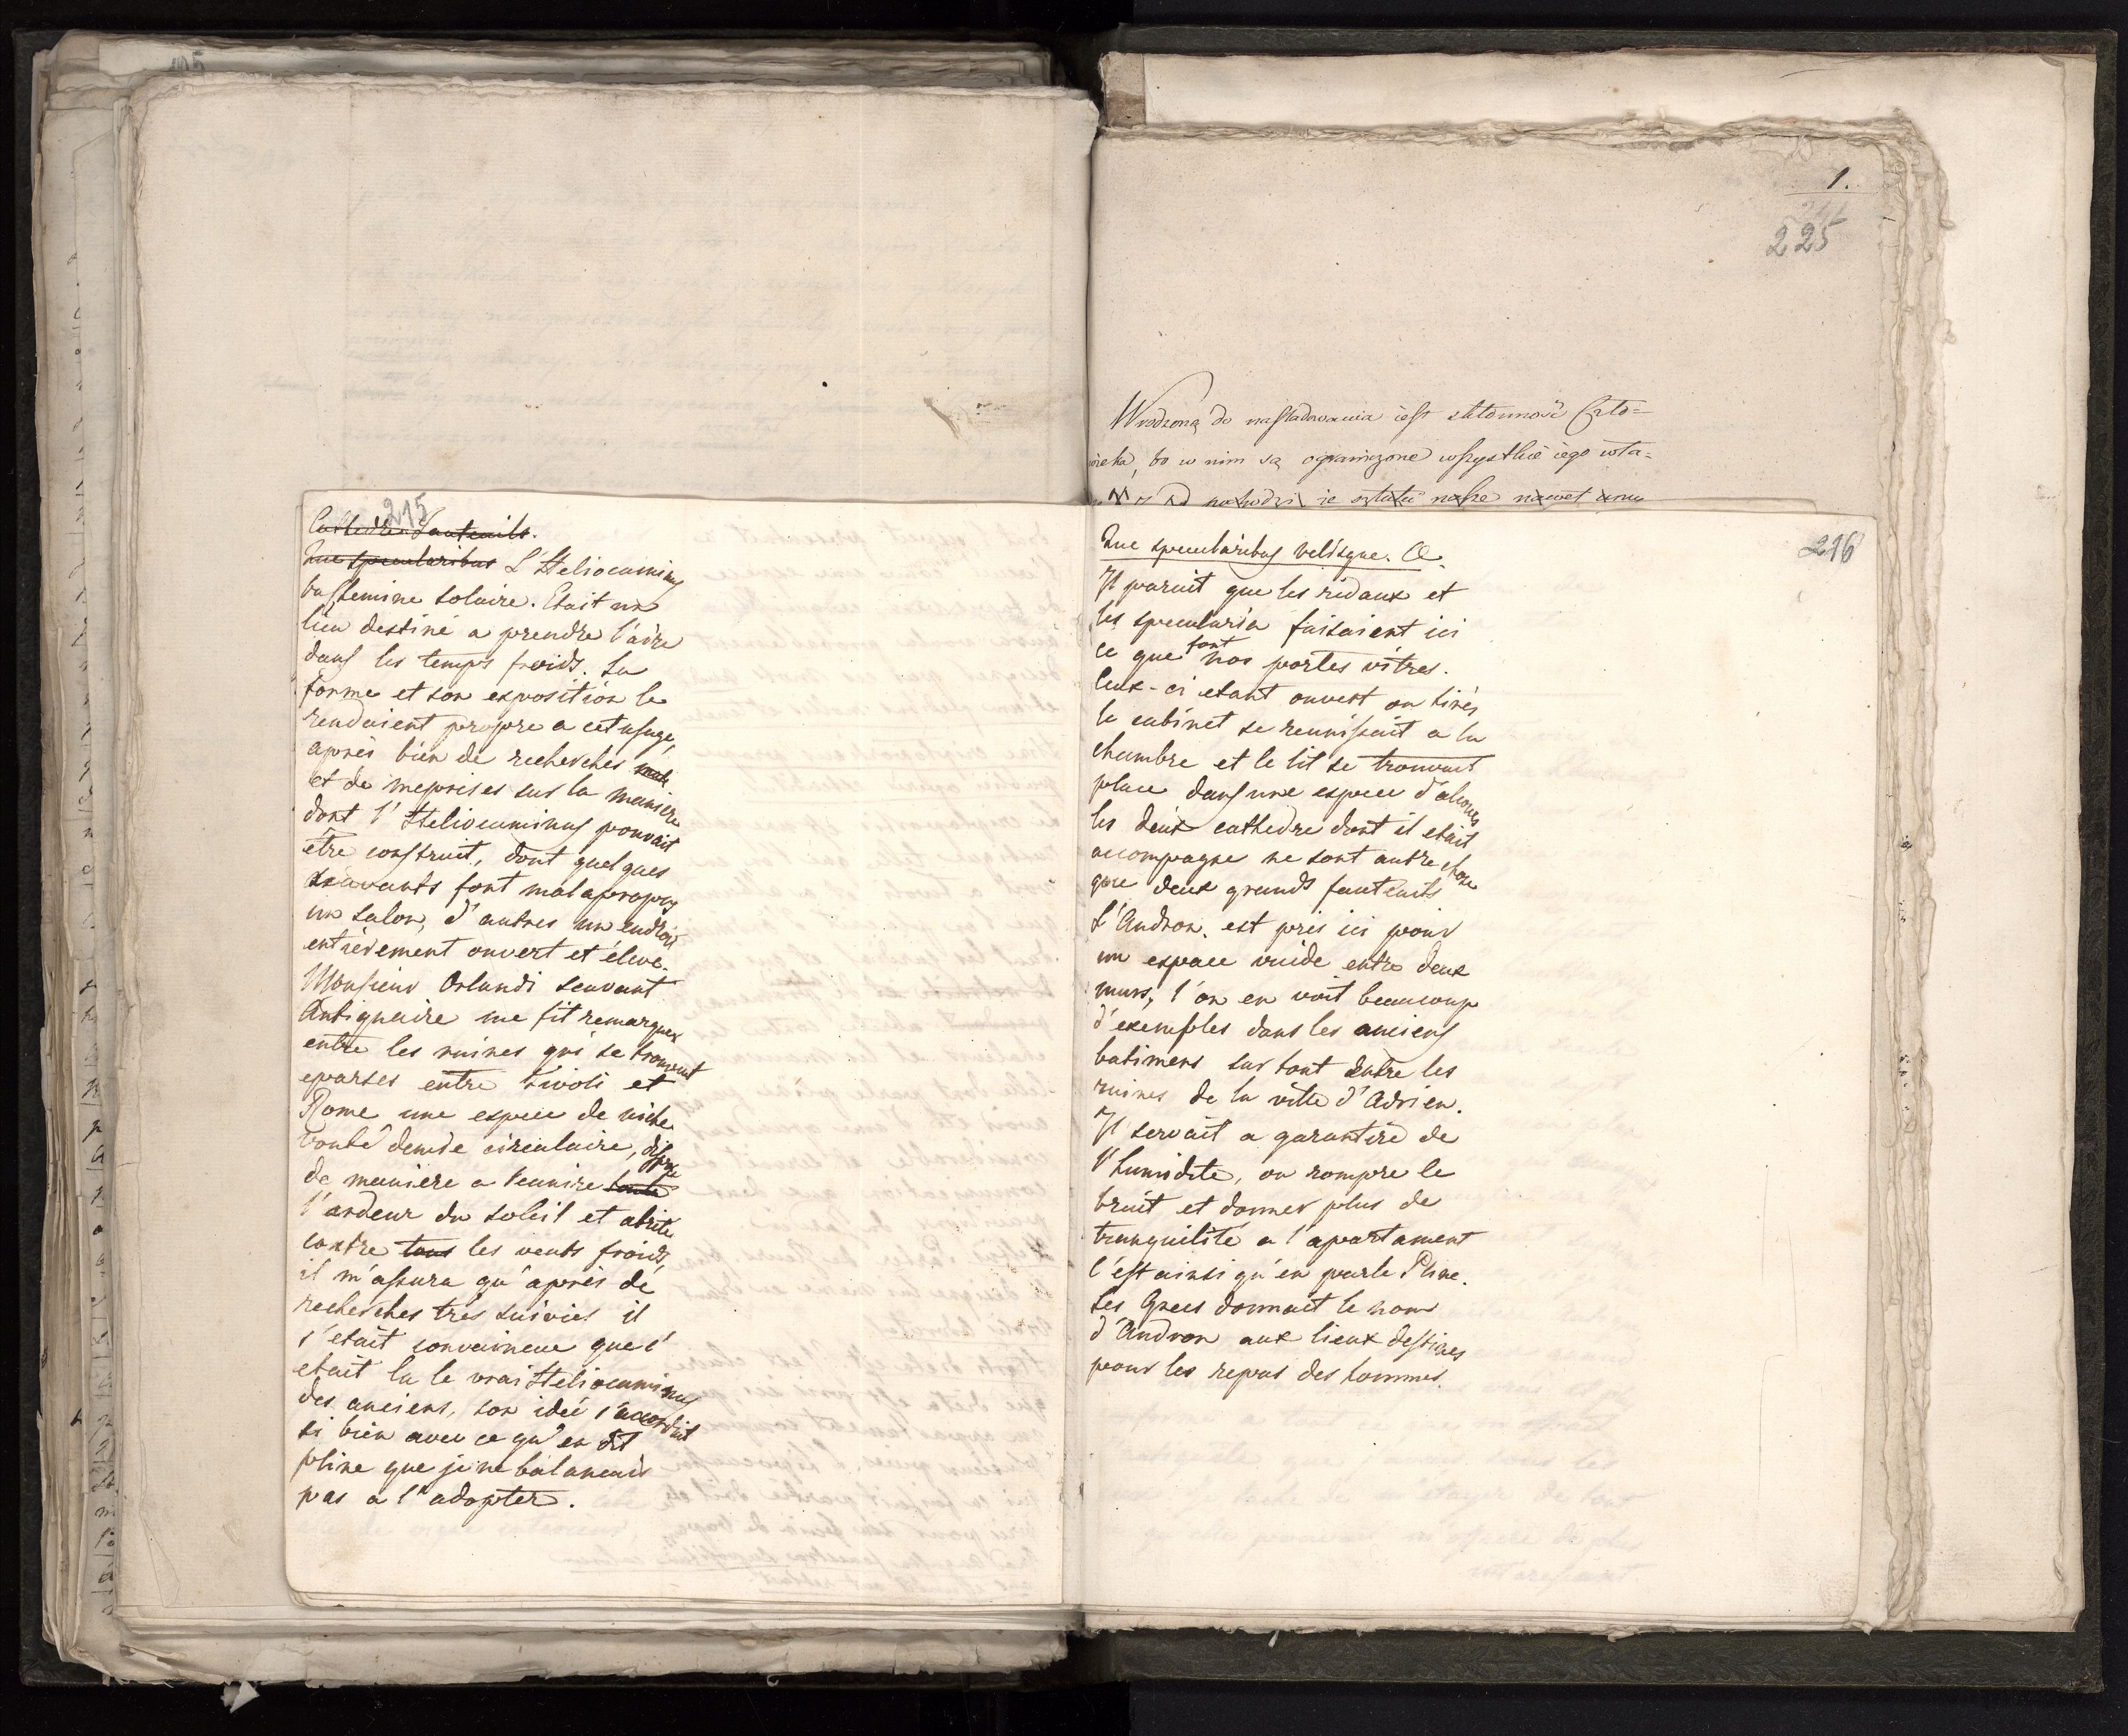 215
Cathedra Fauteuils.
Quae specularibus L'Heliocaminus
bastemine solaire. Etait un
lieu destiné a prendre l'aire
dans les temps froids. Sa
forme et son exposition le
rendaient propre a cet usage,
après bien de recherches
et de meprises sur la maniere
dont l'Heliocaminus pouvait
être construit, dont quelques
scavants font malapropos
un salon, d'autres un endroit
entièrement ouvert et élevé.
Monsieur Orlandi scavant
Antiquaire me fit remarquer
entre les ruines qui se trouvent
eparses entre Tivoli et
Rome une espece de niche
voutê demie circulaire, dispose
de manière a reunire toute
l'ardeur du soleil et abrité
contre tous les vents froids,
il m'assura qu'après dé
recherches très suivies il
s'etait convaincue que c'
etait la le vrai Heliocaminus
des anciens, son idée s'accordait
si bien avec ce qu'en dit
pline que je ne balancais
pas a l'adopter.
1.
225
Wrodzoną do nasladowania iest skłonność Czło=
wieka, bo w nim są ograniczone wszystkie iego wła=
216
Quae specularibus velisque. Cl.
Il parait que les ridaux et
les specularia faisaient ici
ce que font nos portes vitres.
Ceux-ci etant ouvert ou tirés
le cabinet se reunissait a la
chambre et le lit se trouvait
place dans une espece d'alcoves
les deux cathedre dont il etait
accompagne ne sont autre chose
que deux grands fauteuils
L'Andron. est pris ici pour
un espace vuide entre deux
murs, l'on en voit beaucoup
d'exemples dans les anciens
batimens sur tout entre les
ruines de la ville d'Adrien.
Il servait a garantire de
l'humidite, ou rompre le
bruit et donner plus de
tranquilité a l'apartament
c'est ainsi qu'en parle Pline.
Les Grecs donnait le nom
d'Andron aux lieux destines
pour les repas des hommes.